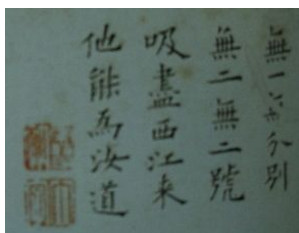 無一分別
無二無二號
吸盡西江来
他能為汝道